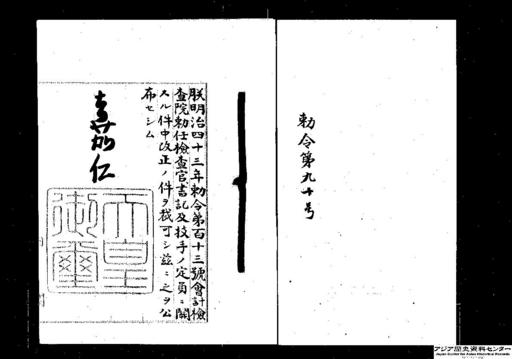 勅令第九十号
朕明治四十三年勅令第百十三號會計檢
査院勅任檢査官書記及技手ノ定員ニ關
スル件中改正ノ件ヲ裁可シ茲ニ之ヲ公
布セシム
嘉仁
天皇
御璽
アジア歴史資料センター
Japan Center for Asian Historical Records